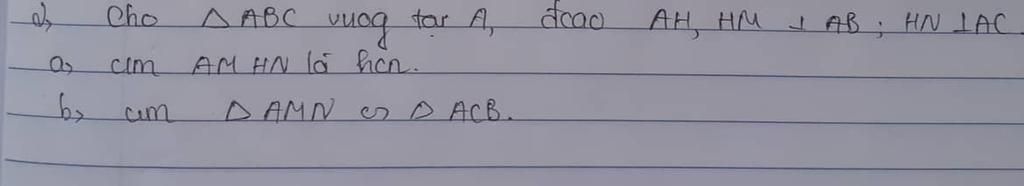 d, Cho △ ABC vuog tại A, đcao AH, HM ⊥ AB ; HN ⊥ AC.
a, cm AMHN là hcn.
b, cm △ AMN ∽ △ ACB.